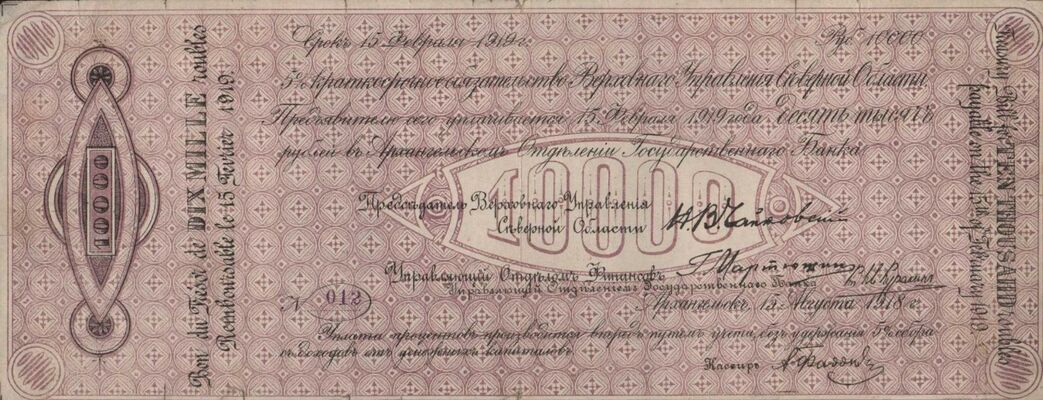 Срокъ 15 Февраля 1919 г.
Руб. 10000
5% краткосрочное обязательство Верховнаго Управленія Сѣверной Области
Предъявителю сего уплачивается 15 Февраля 1919 года десять тысячъ
рублей въ Архангельскомъ Отдѣленіи Государственнаго Банка
10000
Предсѣдатель Верховнаго Управленія
Сѣверной Области
Н. В. Чайковскій
Управляющій Отдѣломъ Финансовъ
Г. Мартюшин
Управляющій Отдѣленіемъ Государственнаго Банка
№ 012
Архангельскъ 15 Августа 1918 г.
Уплата процентовъ производится впередъ путемъ учета, безъ удержанія 5% сбора
съ доходовъ отъ денежныхъ капиталовъ.
Кассиръ
10000
Bon du Trésor de DIX MILLE roubles
Remboursable le 15 Février 1919.
Treasury Bill of TEN THOUSAND roubles
payable on the 15th of February 1919